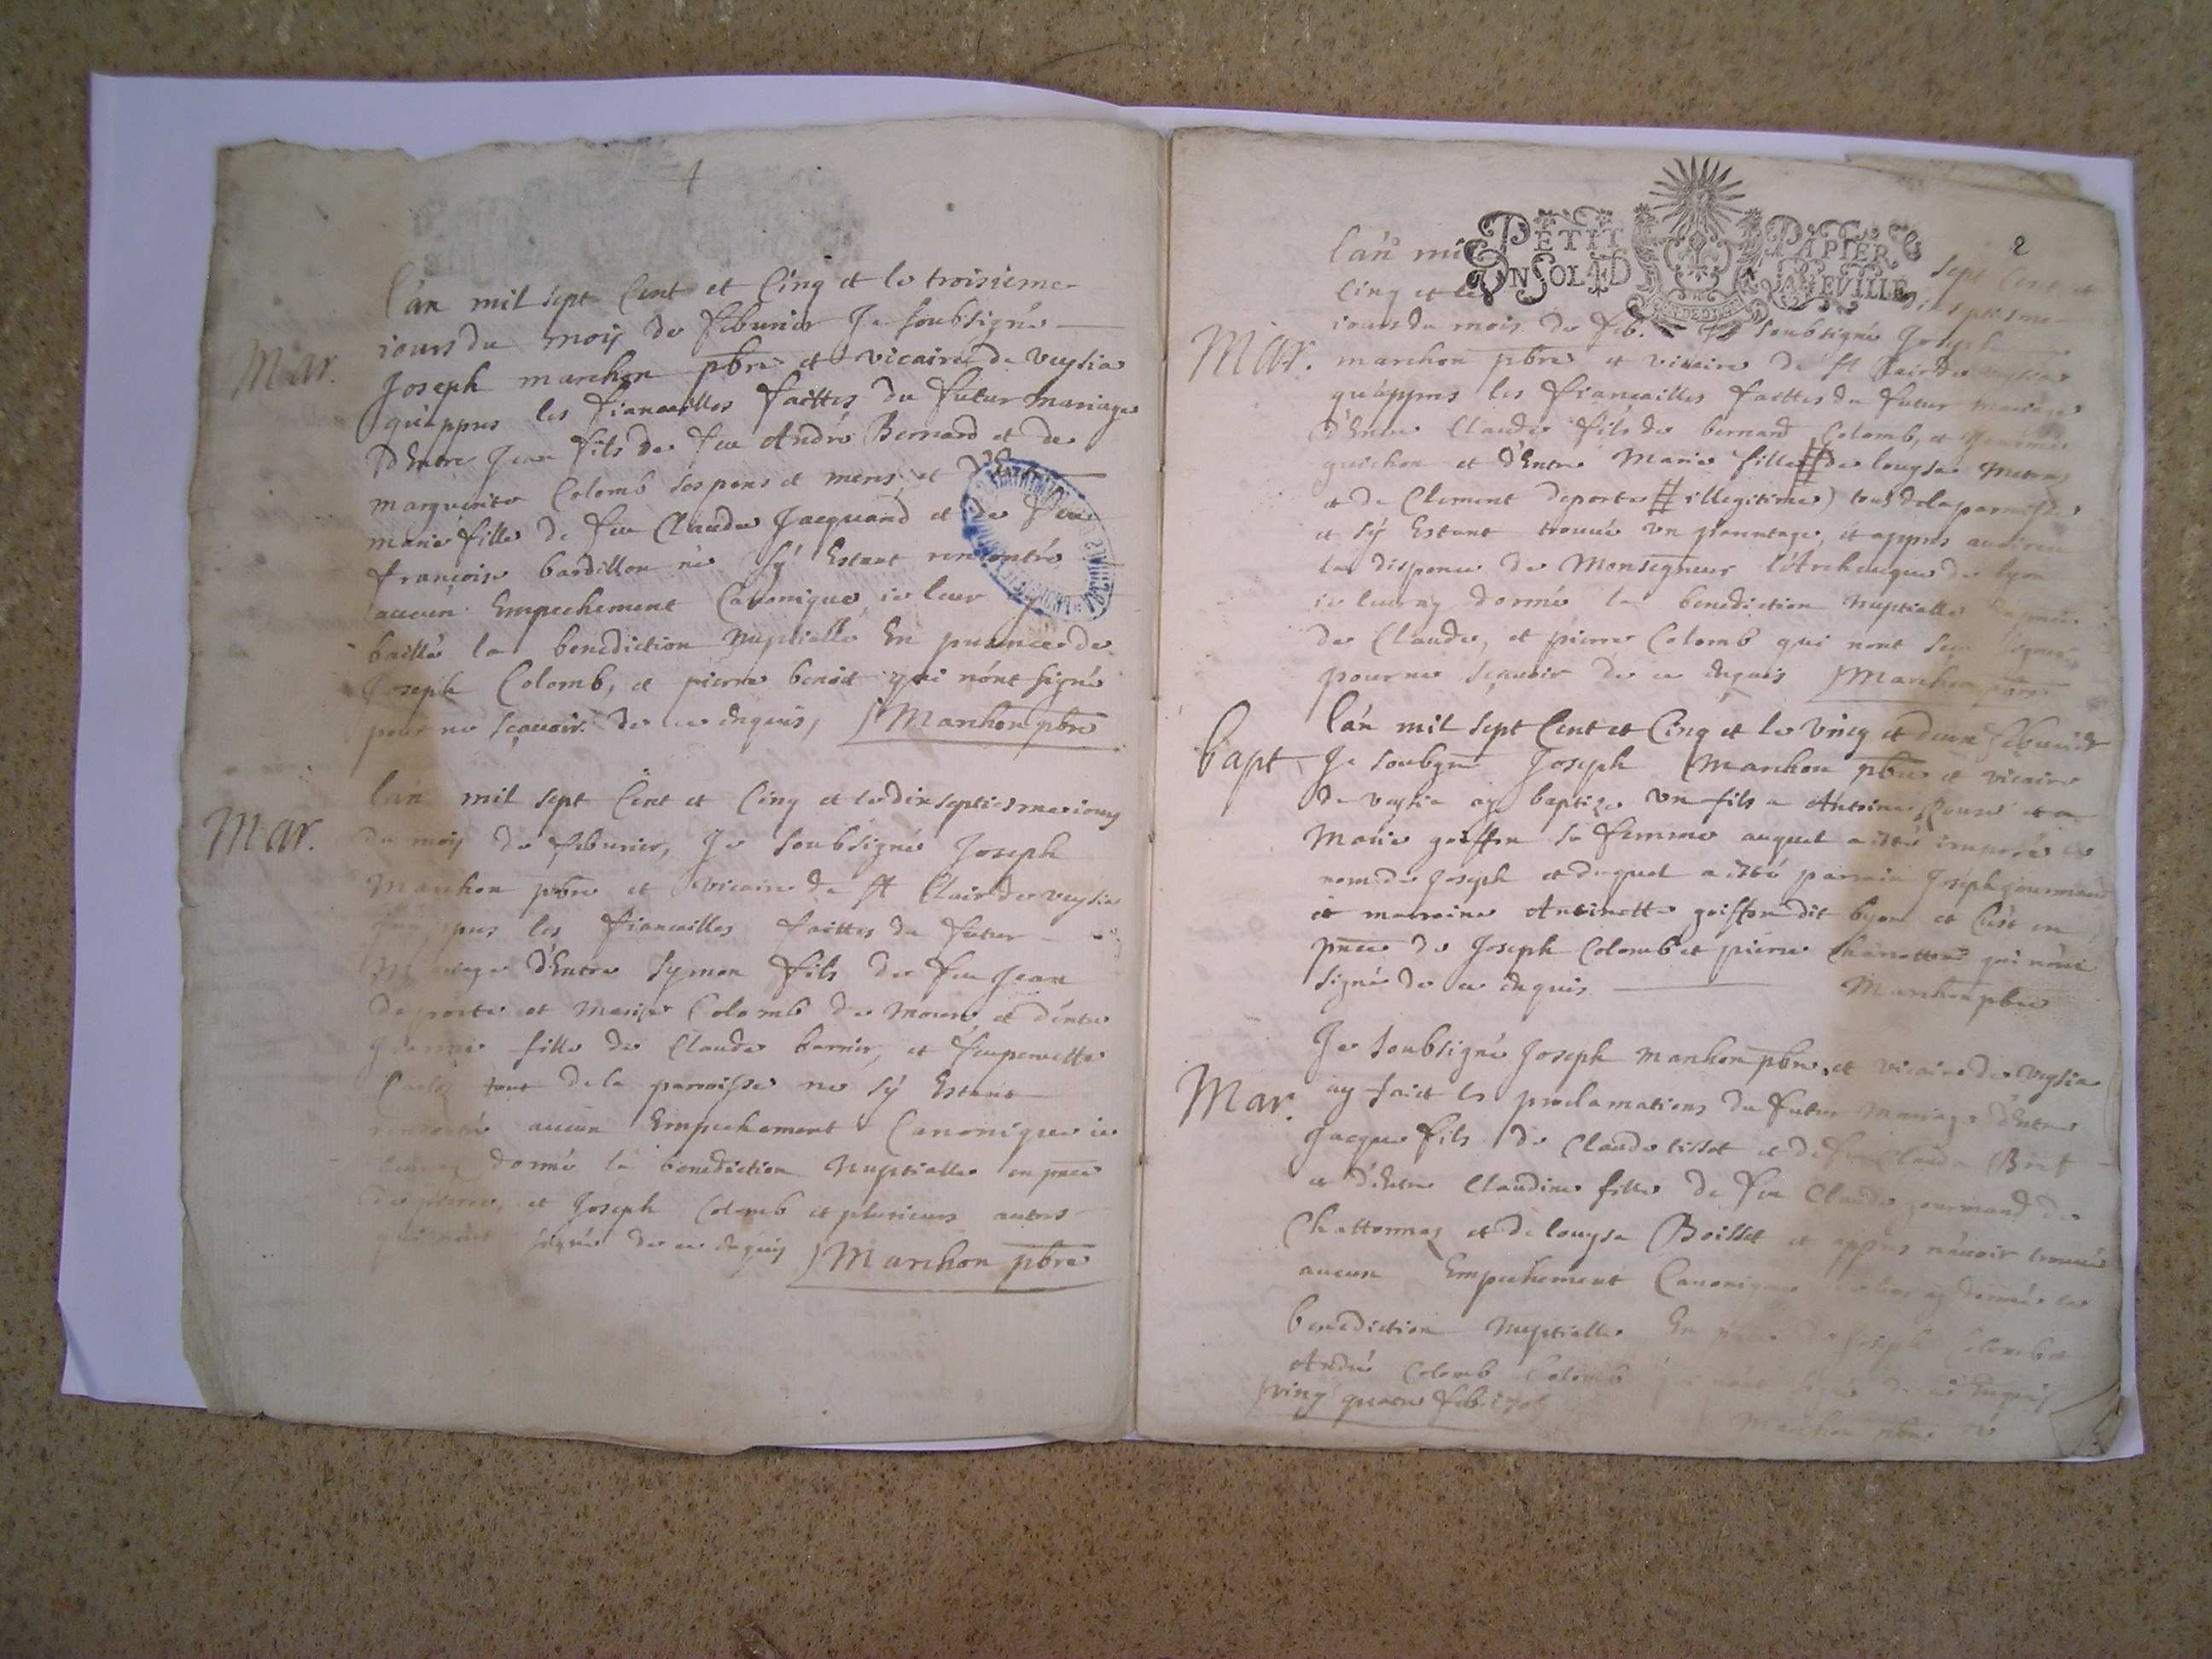 L'an mil sept Cent et Cinq et le troisieme
iours du moy de feburier Je soubsigné
Mar.
Joseph marchon pbre et vicaire de veysia
qu'appres les fiancailles faittes du futur mariage
D'Entre Jean fils de feu André Bernard et de
marguerite Colomb ses pere et mere, et
marie fille de feu Claude Jacquand et de feu
françoise bardillon ne s'y Estant rencontré
aucun Empechement Canonique, ie leur
baillé la benediction Nuptialle En presence de
Joseph Colomb, et pierre benoit qui n'ont signé
pour ne sçavoir de ce enquis, Marchon pbre
L'an mil sept Cent et Cinq et le dix septiesme iours
Mar.
du moy de feburier, Je soubsigné Joseph
Marchon pbre et vicaire de st Clair de veysia
les fiancailles faittes du futur
Mariage d'Entre Symon fils de feu Jean
Deporte et Marie Colomb de et d'entre
fille de Claude et feu pernette
tout de la paroisse ne s'y Estant
aucun Empechement Canonique ie
donné la benediction Nuptialle en pnce
de pierre, et Joseph Colomb et plusieurs autres
qui n'ont signé de ce enquis Marchon pbre
2
PETIT PAPIER
UN SOL 4 D LA FEVILLE
L'an mil sept Cent et
Cinq et le dixseptiesme
iours du mois de feb. Je soubsigné Joseph
Mar.
marchon pbre et vicaire de st Clair de veysia
qu'appres les fiancailles faittes du futur mariage
D'Entre Claude fils de bernard Colomb, et
guichon et d'Entre Marie fille # de louyse
et de Clement deporte # illegitime) tous de la paroisse
et s'y Estant trouvé un et appres avoir eu
la dispence de Monseigneur l'Archevéque de lyon
ie leur ay donné la benediction Nuptialle
de Claude, et pierre Colomb qui n'ont signer
pour ne sçavoir de ce enquis Marchon pbre
L'an mil sept Cent et Cinq et le vingt et deux feburier
bapt
Je soubsigné Joseph Marchon pbre et vicaire
de veysia ay baptizé un fils a Antoine et a
Marie goiffon sa femme auquel a été imposé le
nom de Joseph et duquel a été parrain Joseph gourmand
et marraine Antoinette goiffon dit et C'est en
pnce de Joseph Colomb et pierre qui n'ont
signé de ce enquis Marchon pbre
Je soubsigné Joseph Marchon pbre, et vicaire de veysia
Mar.
ay fait les proclamations du futur Mariage d'Entre
Jacque fils de Claude tissot et de feu Claude
et d'Entre Claudine fille de feu Claude gourmand de
Chattonnay et de louyse Boisset et appres n'avoir trouvé
aucun Empechement Canonique leur ay donné la
benediction Nuptialle En Joseph Colomb et
André Colomb
vingt quatre feb. 1705
Marchon pbre